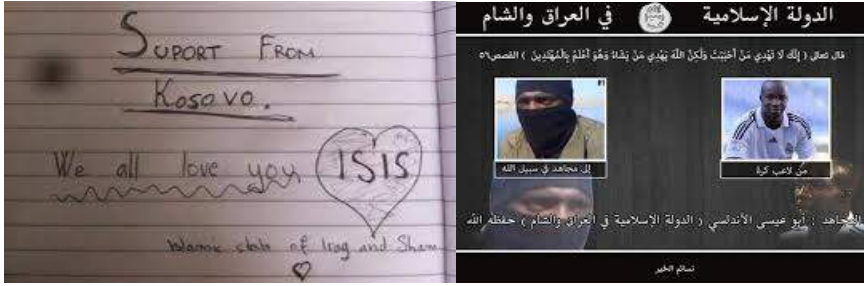 SUPORT FROM
Kosovo.
We all love you ISIS
Islamic state of Iraq and Sham
الدولة الإسلامية في العراق والشام
قال تعالى ( إِنَّكَ لَا تَهْدِي مَنْ أَحْبَبْتَ وَلَكِنَّ اللَّهَ يَهْدِي مَنْ يَشَاءُ وَهُوَ أَعْلَمُ بِالْمُهْتَدِينَ ) القصص٥٦
من لاعب كرة
إلى مجاهد في سبيل الله
المجاهد : أبو عيسى الأندلسي ( الدولة الإسلامية في العراق والشام ) حفظه الله
نسائم الخير